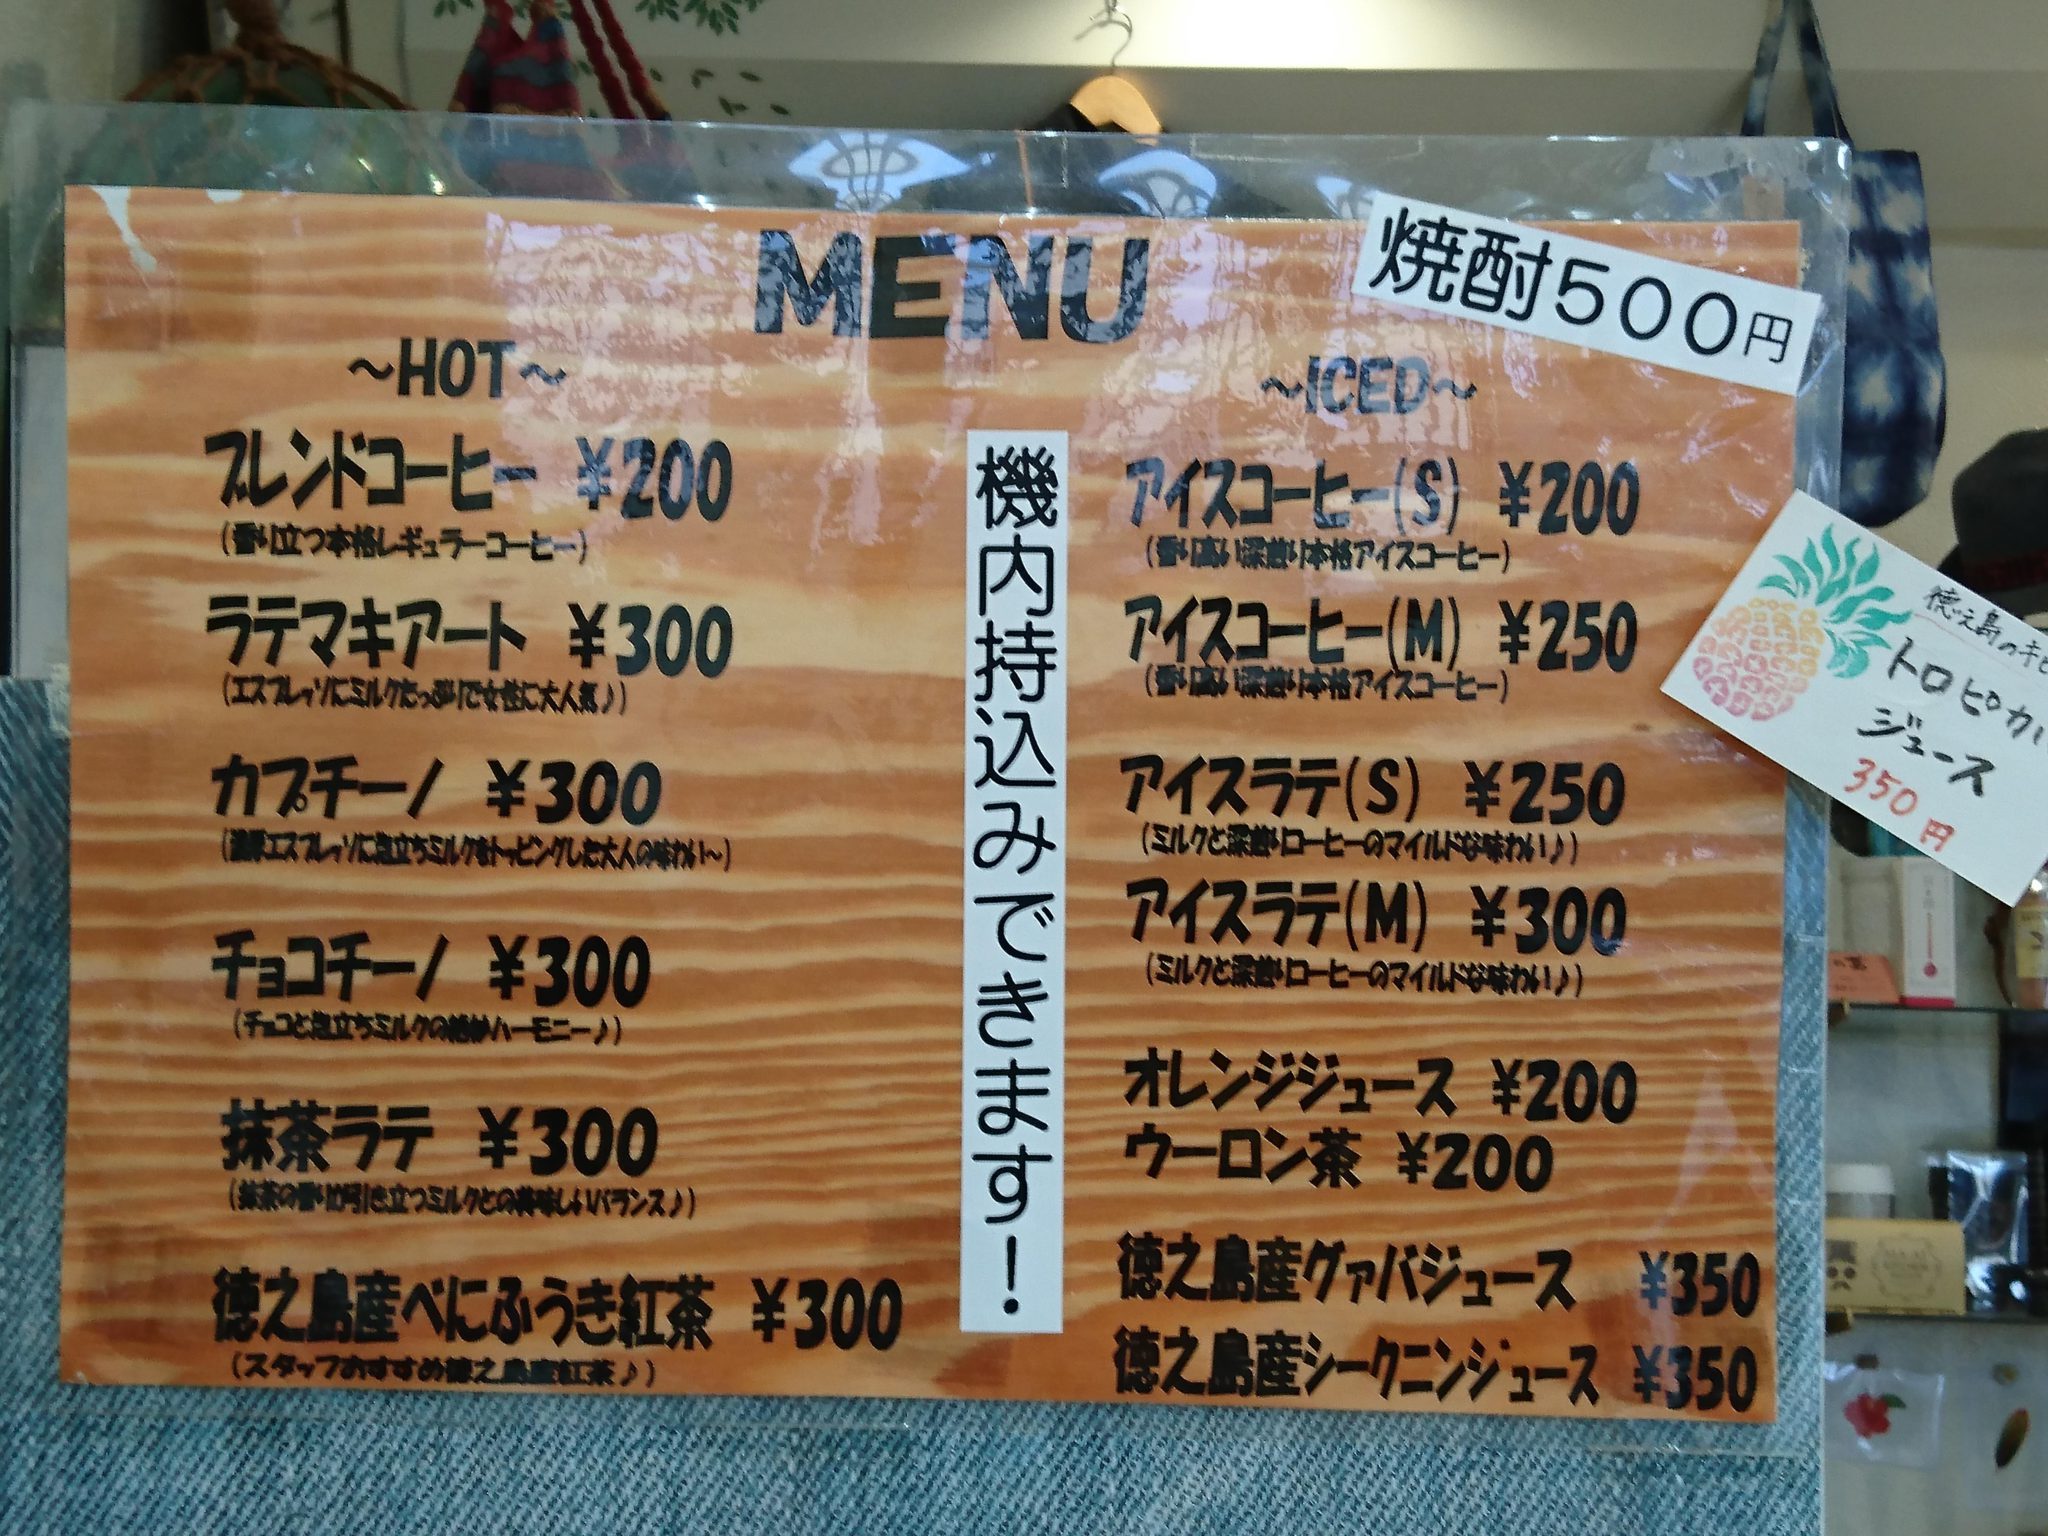 MENU
焼酎500円
～HOT～
ブレンドコーヒー ￥200
(香り立つ本格レギュラーコーヒー)
ラテマキアート ￥300
(エスプレッソにミルクたっぷりで女性に大人気♪)
カプチーノ ￥300
(濃厚エスプレッソに泡立ちミルクをトッピングした大人の味わい～)
チョコチーノ ￥300
(チョコと泡立ちミルクの絶妙ハーモニー♪)
抹茶ラテ ￥300
(抹茶の香りが引き立つミルクとの美味しいバランス♪)
徳之島産べにふうき紅茶 ￥300
(スタッフおすすめ徳之島産紅茶♪)
機内持込みできます！
～ICED～
アイスコーヒー(S) ￥200
(香り高い深煎り本格アイスコーヒー)
アイスコーヒー(M) ￥250
(香り高い深煎り本格アイスコーヒー)
アイスラテ(S) ￥250
(ミルクと深煎りコーヒーのマイルドな味わい♪)
アイスラテ(M) ￥300
(ミルクと深煎りコーヒーのマイルドな味わい♪)
オレンジジュース ￥200
ウーロン茶 ￥200
徳之島産グァバジュース ￥350
徳之島産シークニンジュース ￥350
徳之島のキビ
トロピカル
ジュース
350円